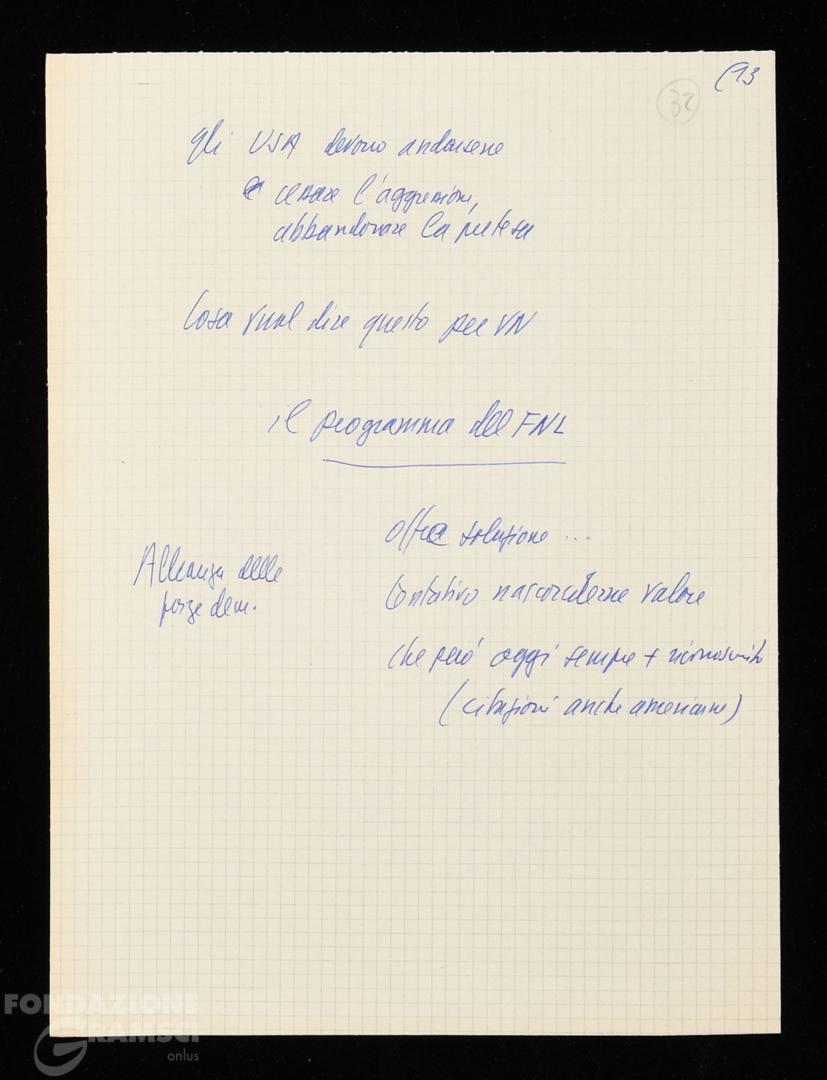 (13
32
gli USA devono andarsene
e cessare l'aggressione,
abbandonare la pretesa
Cosa vuol dire questo per VN
il programma del FNL
offre soluzione ...
Alleanza delle
forze dem.
tentativo nasconderne valore
che però oggi sempre + riconosciuto
(citazioni anche americane)
FONDAZIONE
GRAMSCI
onlus